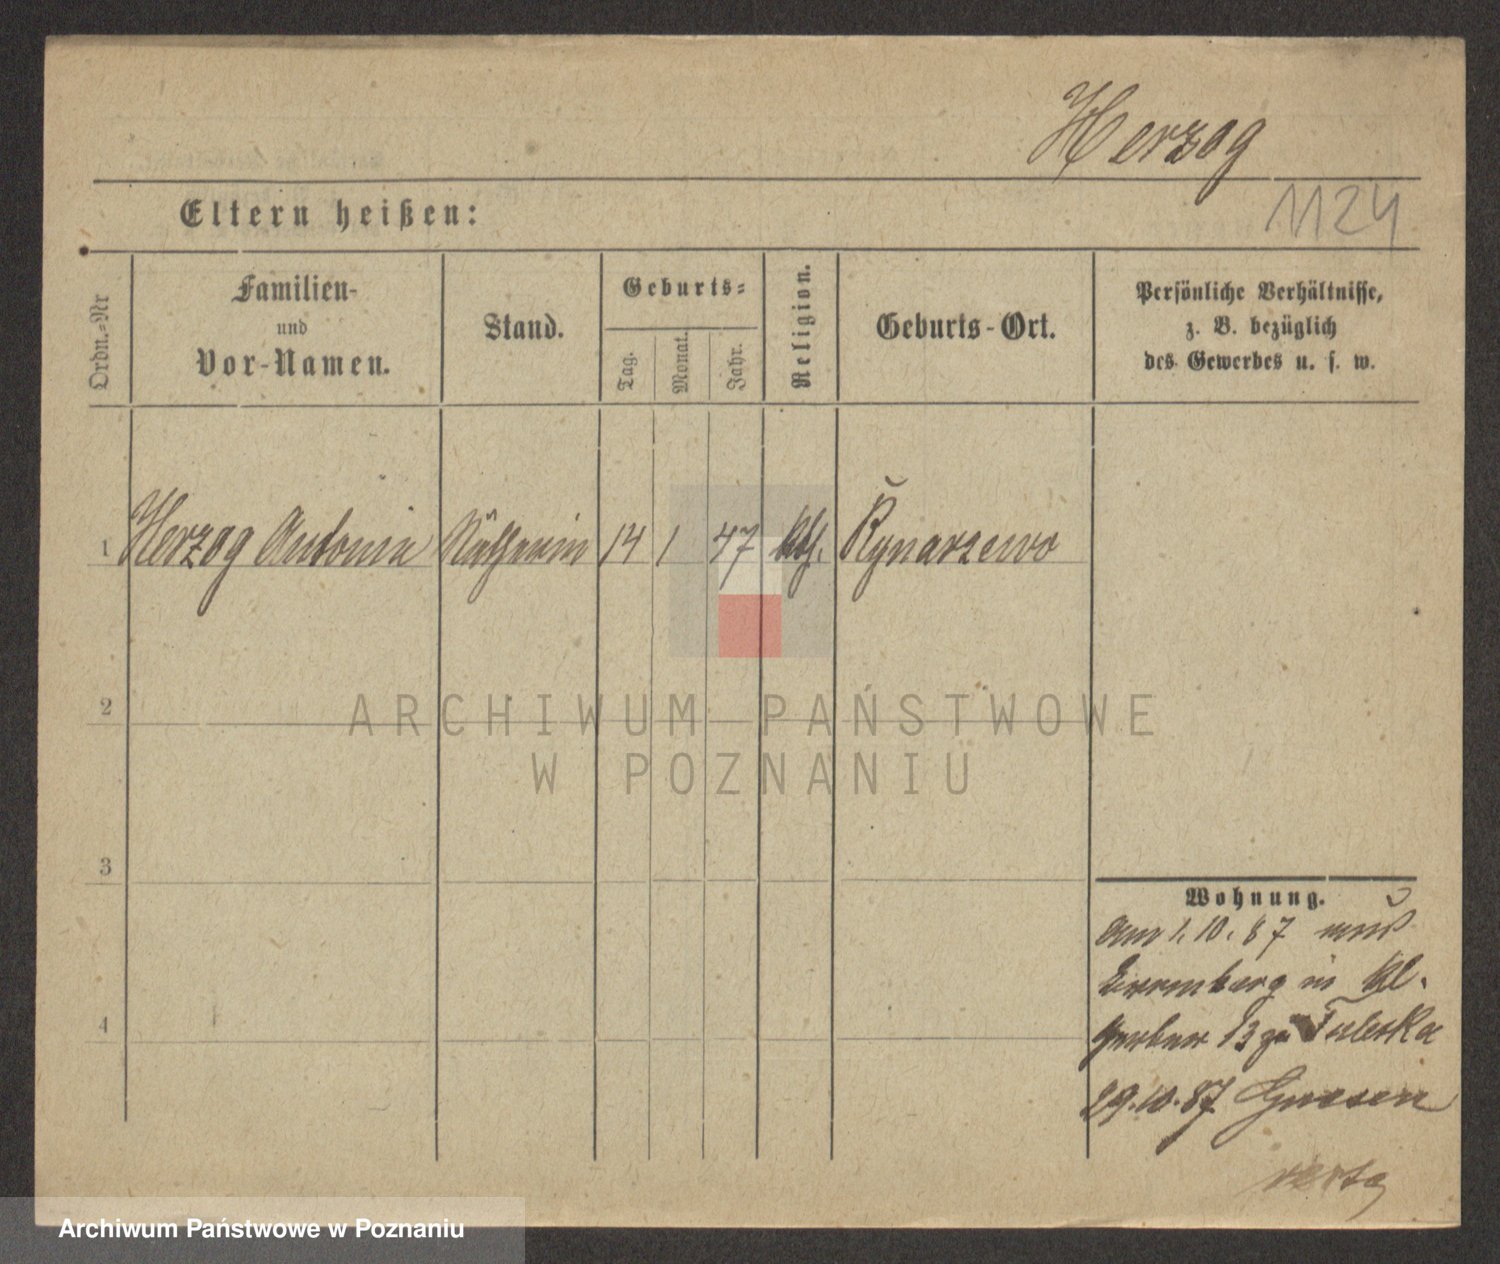 Herzog
Eltern heißen:
1124
Ordn.-Nr
Familien-
und
Vor-Namen.
Stand.
Geburts-
Tag.
Monat.
Jahr.
Religion.
Geburts-Ort.
Persönliche Verhältnisse,
z. B. bezüglich
des Gewerbes u. s. w.
1 Herzog Antonia Nätherin 14 1 47 kth. Rynarzewo
2
ARCHIWUM PAŃSTWOWE
W POZNANIU
3
Wohnung.
am 1.10.87 aus
in Kl.
4
Gerber 13 zu Tuleska
29.10.87 Gnesen
Archiwum Państwowe w Poznaniu